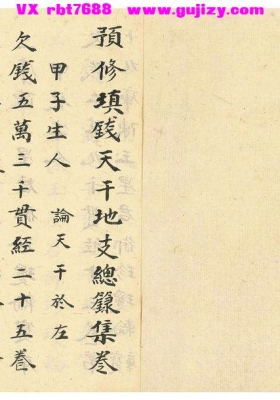 VX rbt7688 www.gujizy.com
預修填錢天干地支總籙集卷
甲子生人 論天干於左
欠錢五萬三千貫經二十五卷